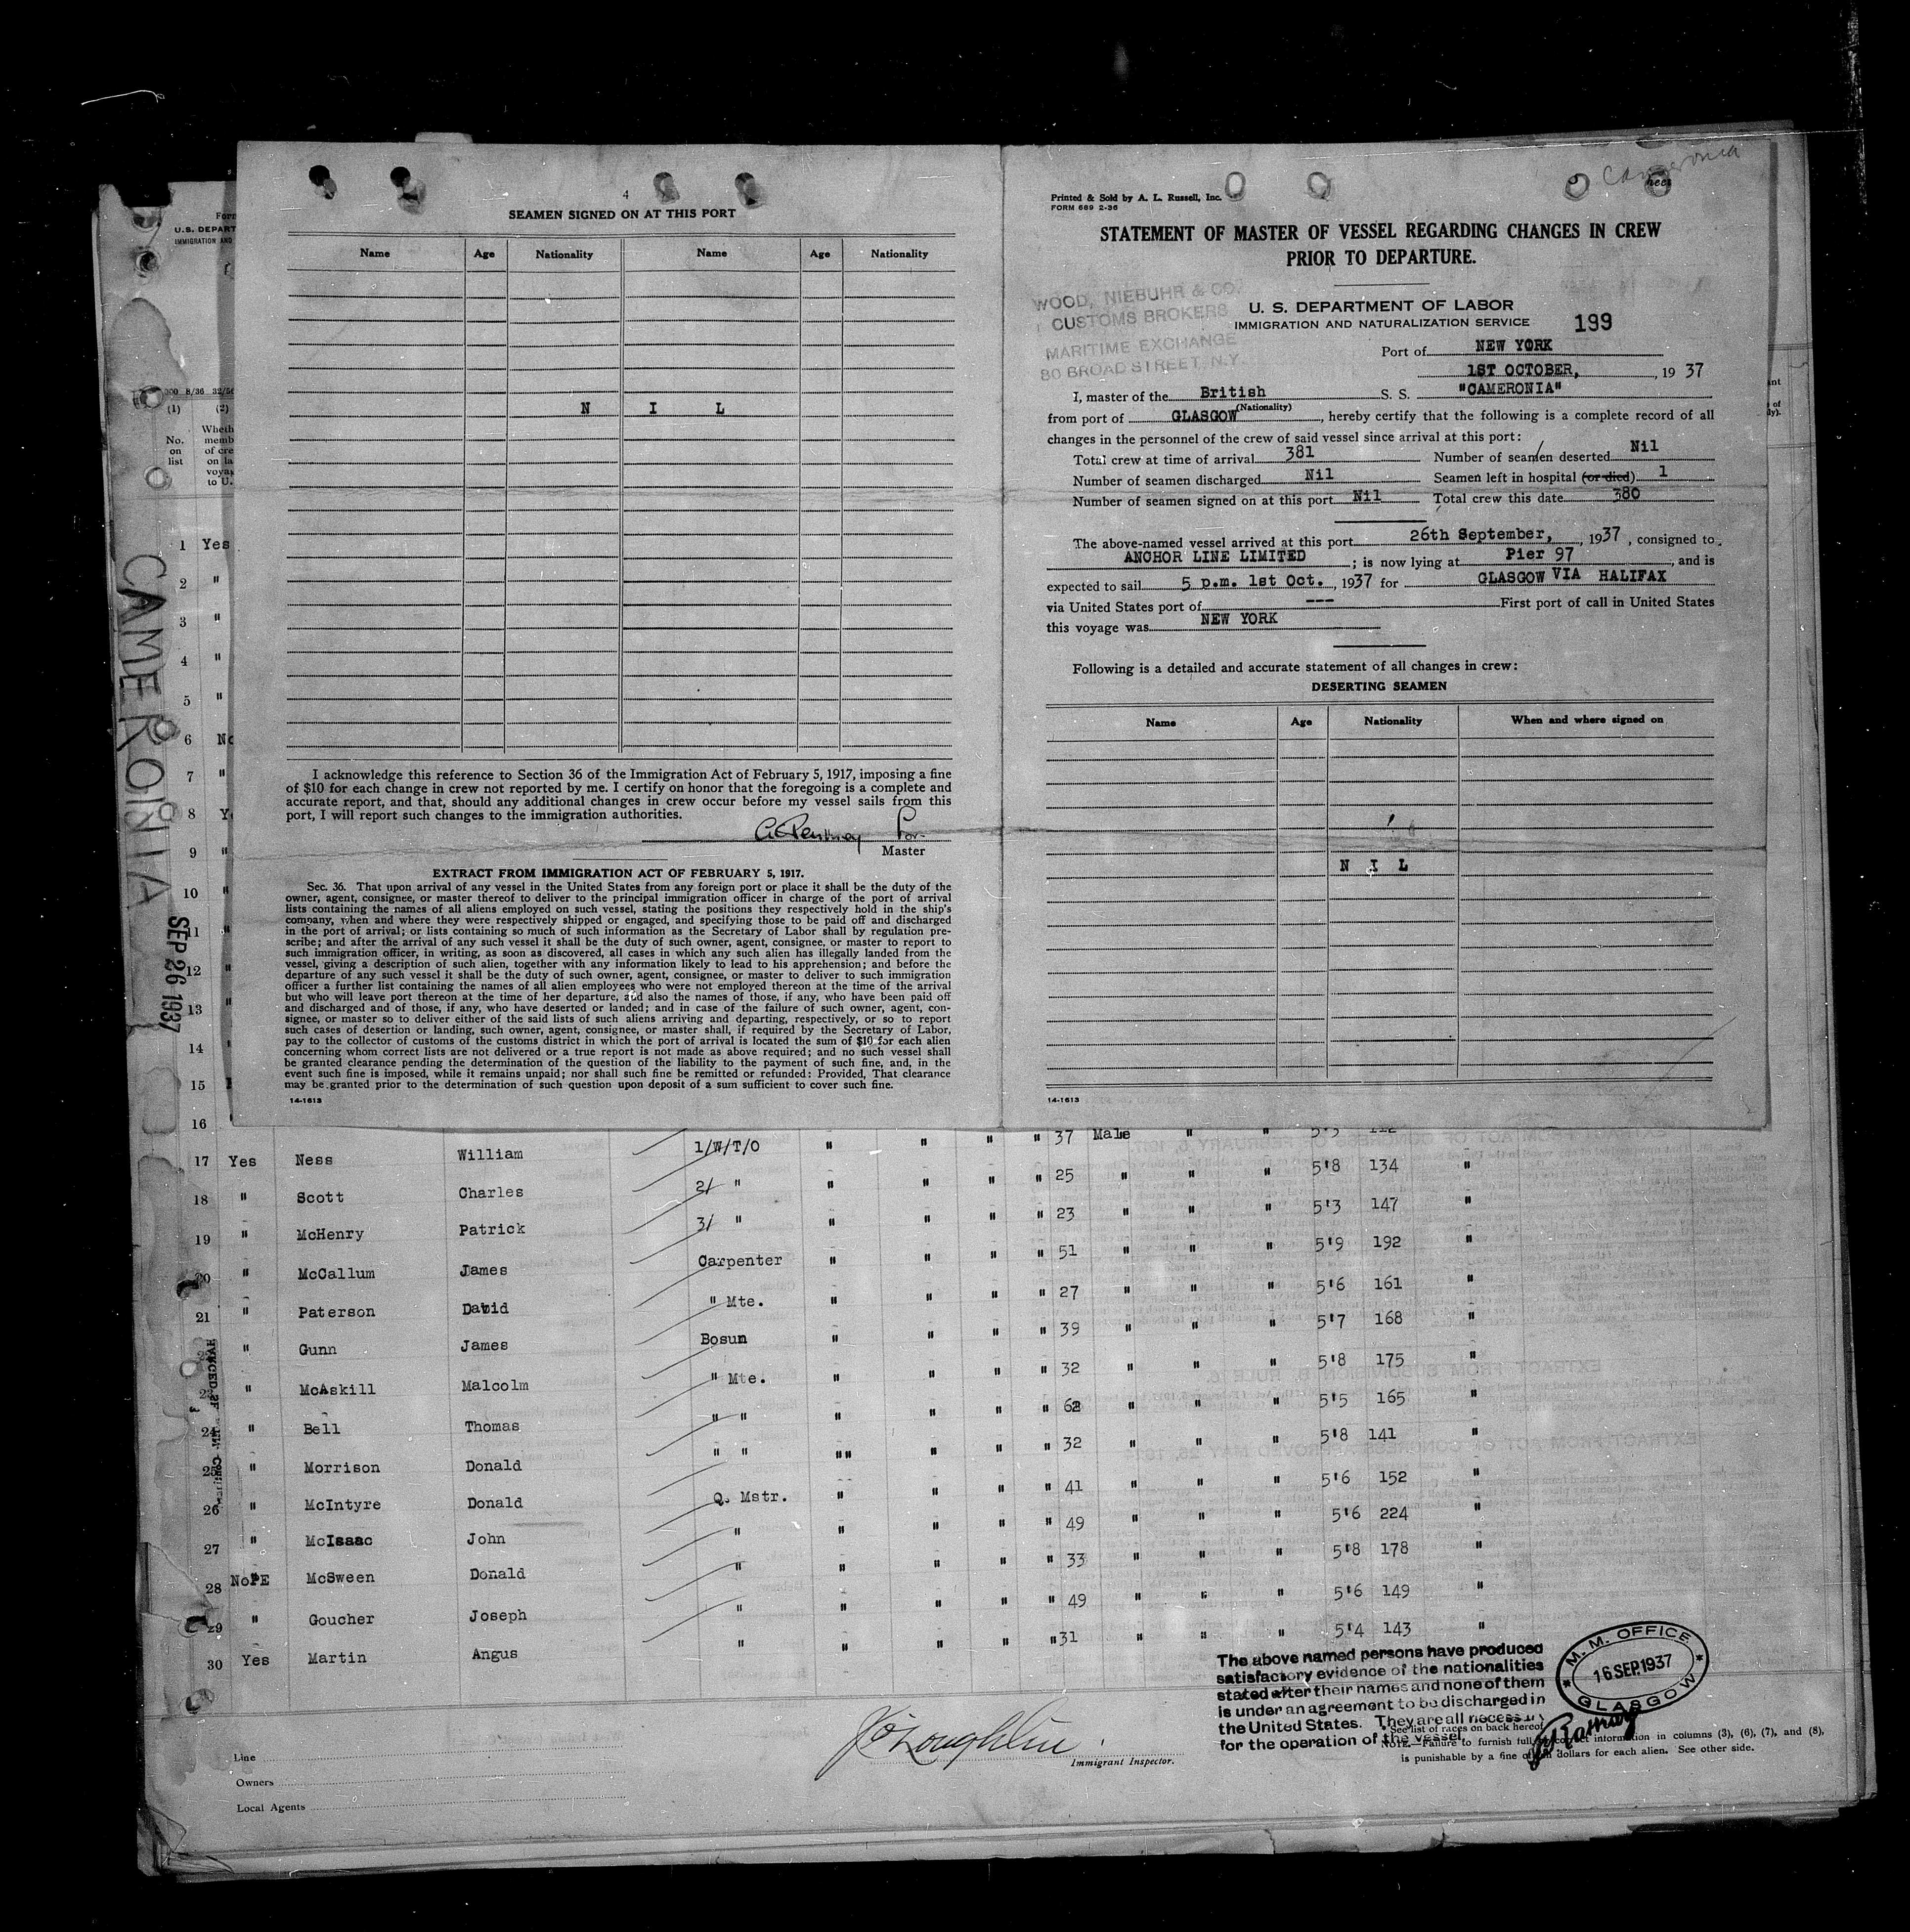 4
SEAMEN SIGNED ON AT THIS PORT
Name Age Nationality Name Age Nationality
N I L
I acknowledge this reference to Section 36 of the Immigration Act of February 5, 1917, imposing a fine
of $10 for each change in crew not reported by me. I certify on honor that the foregoing is a complete and
accurate report, and that, should any additional changes in crew occur before my vessel sails from this
port, I will report such changes to the immigration authorities.
For
Master
EXTRACT FROM IMMIGRATION ACT OF FEBRUARY 5, 1917.
Sec. 36. That upon arrival of any vessel in the United States from any foreign port or place it shall be the duty of the
owner, agent, consignee, or master thereof to deliver to the principal immigration officer in charge of the port of arrival
lists containing the names of all aliens employed on such vessel, stating the positions they respectively hold in the ship's
company, when and where they were respectively shipped or engaged, and specifying those to be paid off and discharged
in the port of arrival; or lists containing so much of such information as the Secretary of Labor shall by regulation pre-
scribe; and after the arrival of any such vessel it shall be the duty of such owner, agent, consignee, or master to report to
such immigration officer, in writing, as soon as discovered, all cases in which any such alien has illegally landed from the
vessel, giving a description of such alien, together with any information likely to lead to his apprehension; and before the
departure of any such vessel it shall be the duty of such owner, agent, consignee, or master to deliver to such immigration
officer a further list containing the names of all alien employees who were not employed thereon at the time of the arrival
but who will leave port thereon at the time of her departure, and also the names of those, if any, who have been paid off
and discharged and of those, if any, who have deserted or landed; and in case of the failure of such owner, agent, con-
signee, or master so to deliver either of the said lists of such aliens arriving and departing, respectively, or so to report
such cases of desertion or landing, such owner, agent, consignee, or master shall, if required by the Secretary of Labor,
pay to the collector of customs of the customs district in which the port of arrival is located the sum of $10 for each alien
concerning whom correct lists are not delivered or a true report is not made as above required; and no such vessel shall
be granted clearance pending the determination of the question of the liability to the payment of such fine, and, in the
event such fine is imposed, while it remains unpaid; nor shall such fine be remitted or refunded: Provided, That clearance
may be granted prior to the determination of such question upon deposit of a sum sufficient to cover such fine.
14-1613
Cameronia
Printed & Sold by A. L. Russell, Inc.
FORM 689 2-36
STATEMENT OF MASTER OF VESSEL REGARDING CHANGES IN CREW
PRIOR TO DEPARTURE.
WOOD, NIEBUHR & CO.
CUSTOMS BROKERS
MARITIME EXCHANGE
80 BROAD STREET, N.Y.
U. S. DEPARTMENT OF LABOR
IMMIGRATION AND NATURALIZATION SERVICE
199
Port of NEW YORK
1ST OCTOBER, , 19 37
I, master of the British S. S. "CAMERONIA"
(Nationality)
from port of GLASGOW , hereby certify that the following is a complete record of all
changes in the personnel of the crew of said vessel since arrival at this port:
Total crew at time of arrival 381 Number of seamen deserted Nil
Number of seamen discharged Nil Seamen left in hospital (or died) 1
Number of seamen signed on at this port Nil Total crew this date 380
The above-named vessel arrived at this port 26th September, , 1937 , consigned to
ANCHOR LINE LIMITED ; is now lying at Pier 97 , and is
expected to sail 5 p.m. 1st Oct. , 1937 for GLASGOW VIA HALIFAX
via United States port of --- First port of call in United States
this voyage was NEW YORK
Following is a detailed and accurate statement of all changes in crew:
DESERTING SEAMEN
Name Age Nationality When and where signed on
N I L
14-1613
Form
U.S. DEPART
IMMIGRATION AND
8/36
(1) (2)
No.
on
list
CAMERONIA
SEP 26 1937
1 Yes
2 "
3 "
4 "
5 "
6 No
7 "
8
9 "
10 "
11 "
12 "
13 "
14
15
16
37 Male " " 5'3 112
17 Yes Ness William 1/W/T/O " " " " 25 " " " 5'8 134 "
18 " Scott Charles 2/ " " " " " 23 " " " 5'3 147 "
19 " McHenry Patrick 3/ " " " " " 51 " " " 5'9 192 "
20 " McCallum James Carpenter " " " " 27 " " " 5'6 161 "
21 " Paterson David " Mte. " " " " 39 " " " 5'7 168 "
22 " Gunn James Bosun " " " " 32 " " " 5'8 175 "
23 " McAskill Malcolm " Mte. " " " " 62 " " " 5'5 165 "
24 " Bell Thomas " " " " " " 32 " " " 5'8 141 "
25 " Morrison Donald " " "" " " " 41 " " " 5'6 152 "
26 " McIntyre Donald Q. Mstr. " " " " 49 " " " 5'6 224 "
27 " McIsaac John " " " " " 33 " " " 5'8 178 "
28 NoPE McSween Donald " " " " " 49 " " " 5'6 149 "
29 " Goucher Joseph " " " " " 31 " " " 5'4 143 "
30 Yes Martin Angus " " " "
The above named persons have produced
satisfactory evidence of the nationalities
stated after their names and none of them
is under an agreement to be discharged in
the United States. They are all necessary
for the operation of the vessel
M. M. OFFICE
16 SEP. 1937
GLASGOW
Line
Owners
Local Agents
Immigrant Inspector.
* See list of races on back hereof
NOTE.—Failure to furnish full or correct information in columns (3), (6), (7), and (8),
is punishable by a fine of ten dollars for each alien. See other side.